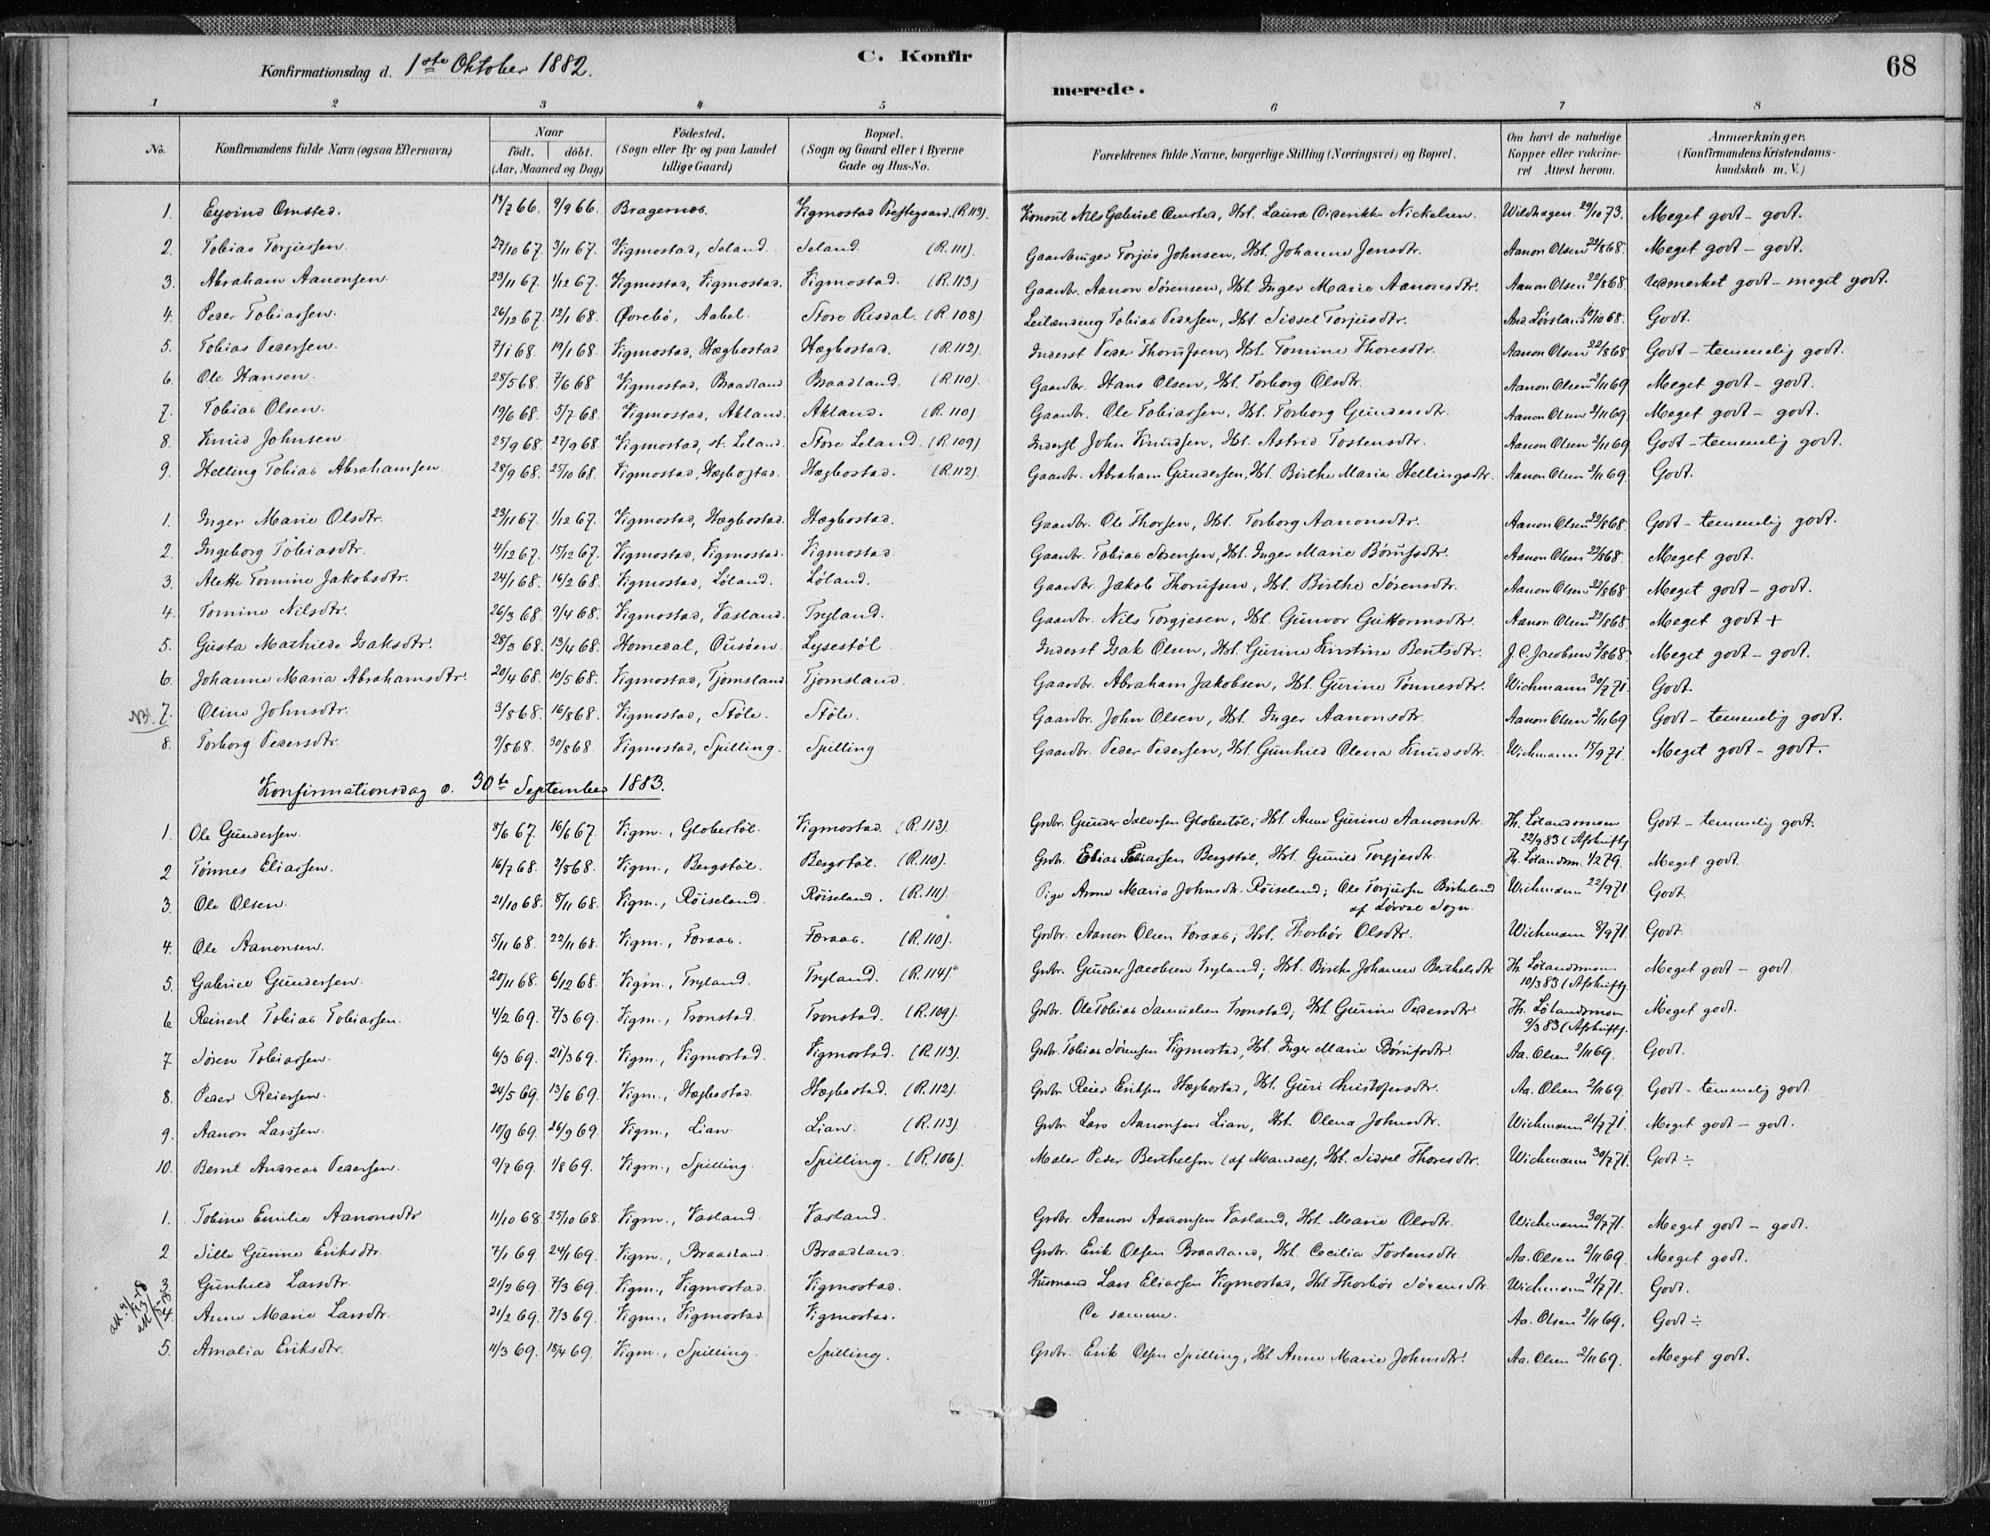 C. Konfirmerede.
68
Konfirmationsdag d. 1ste Oktober 1882.
1 2 3 4 5 6 7 8
No. | Konfirmandens fulde Navn (ogsaa Efternavn) | Naar født. døbt. (Aar, Maaned og Dag) | Fødested. (Sogn eller By og paa Landet tillige Gaard) | Bopæl. (Sogn og Gaard eller i Byerne Gade og Hus-No. | Forældrenes fulde Navne, borgerlige Stilling (Næringsvei) og Bopæl. | Om havt de naturlige Kopper eller vakcineret Attest herom. | Anmærkninger. (Konfirmandens Kristendomskundskab m. V.)
1. Eyvind Omsted. 13/7 66. 9/9 66. Bragernæs. Vigmostad Prestegaard. (R. 113). Konsul Nils Gabriel Omsted, Hst. Laura Diderikke Nickelsen. Wildhagen 29/10 73. Meget godt – godt.
2. Tobias Torjussen. 27/10 67. 3/11 67. Vigmostad, Seland. Seland (R. 111). Gaardbruger Torjus Johnsen, Hst. Johanne Jensdtr. Aanon Olsen 22/8 68. Meget godt – godt.
3. Abraham Aanonsen. 23/11 67. 1/12 67. Vigmostad, Vigmostad. Vigmostad. (R. 113) Gaardbr. Aanon Sørensen, Hst. Inger Marie Aanonsdtr. Aanon Olsen 22/8 68. Udmerket godt – meget godt.
4. Peder Tobiassen. 26/12 67. 12/1 68. Øvrebø, Aabel. Store Risdal. (R. 108) Leilænding Tobias Pedersen, Hst. Sidsel Torjusdtr. Godt.
5. Tobias Pedersen. 7/1 68. 19/1 68. Vigmostad, Hægbostad. Hægbostad. (R. 112). Inderst Peder Thorufsen, Hst. Tomine Thoresdtr. Aanon Olsen 22/8 68. Godt – temmelig godt.
6. Ole Hansen. 28/5 68. 7/6 68 Vigmostad, Braadland Braadland. (R. 110). Gaardbr. Hans Olsen, Hst. Torborg Olsdtr. Aanon Olsen 2/11 69 Meget godt – godt.
7. Tobias Olsen. 19/6 68. 5/7 68. Vigmostad, Akland. Akland. (R. 110) Gaardbr. Ole Tobiassen, Hst. Torborg Gundersdtr. Aanon Olsen 2/11 69. Meget godt – godt.
8. Knud Johnsen. 27/9 68. Vigmostad, st. Leland. Store Leland. (R. 109) Inderst John Knudsen, Hst. Astrid Tostensdtr. Aanon Olsen 2/11 69 Godt – temmelig godt.
9. Helling Tobias Abrahamsen 28/9 68. 25/10 68. Vigmostad, Hægbostad. Hægbostad. (R. 112). Gaardbr. Abraham Gundersen, Hst. Birthe Maria Hellingsdtr. Aanon Olsen 2/11 69. Godt.
1. Inger Marie Olsdtr. 23/11 67. 1/12 67. Vigmostad, Hægbostad. Hægbostad. Gaardbr. Ole Thorsen, Hst. Torborg Aanonsdtr. Aanon Olsen 22/8 68. Godt – temmelig godt.
2. Ingeborg Tobiasdtr. 4/12 67. 15/12 67. Vigmostad, Vigmostad. Vigmostad. Gaardbr. Tobias Sørensen, Hst. Inger Marie Børufsdtr. Aanon Olsen 22/8 68. Meget godt.
3. Alette Tomine Jakobsdtr. 24/1 68. 16/2 68. Vigmostad, Løland. Løland. Gaardbr. Jakob Thorufsen, Hst. Birthe Sørensdtr. Aanon Olsen 22/8 68. Meget godt – godt.
4. Tomine Nilsdtr. 26/3 68. 9/4 68. Vigmostad, Vasland. Tryland. Gaardbr. Nils Torgjesen, Hst. Gunvor Guttormsdtr. Aanon Olsen 22/8 68. Meget godt +
5. Gusta Mathilde Isaksdtr. 28/3 68. 13/4 68. Homedal, Lysestøl Inderst Isak Olsen, Hst. Gurine Kirstine Bentsdtr. J. C. Jacobsen 2/8 68. Meget godt – godt.
6. Johanne Maria Abrahamsdtr. 20/4 68. 10/5 68. Vigmostad, Tjomsland. Tjomsland. Gaardbr. Abraham Jakobsen, Hst. Gurine Tønnesdtr. Wichmann 30/7 71. Godt.
NB. 7. Oline Johnsdtr. 3/8 68. 16/8 68. Vigmostad, Støle. Støle. Gaardbr. John Olsen, Hst. Inger Aanonsdtr. Aanon Olsen 2/11 69 Godt – temmelig godt.
8. Torborg Pedersdtr. 9/8 68. 30/8 68. Vigmostad, Spilling. Spilling Gaardbr. Peder Pedersen, Hst. Gunhild Olena Knudsdtr. Wichmann 15/9 71. Meget godt – godt.
Konfirmationsdag d. 30te September 1883.
1. Ole Gundersen. 8/6 67. 16/6 67. Vigm., Globestøl. Vigmostad. (R. 113) Grdbr. Gunder Salvesen Globestøl; Hst. Anne Gurine Aanonsdtr. Th. Lølandsmom 22/9 83 (Afskrift) Godt – temmelig godt.
2. Tønnes Eliassen. 16/7 68. 2/8 68. Vigm., Bergstøl. Bergstøl. (R. 110). Grdbr. Elias Eliassen Bergstøl, Hst. Gunild Torgjesdtr. Th. Lølandsm. 1/2 79. Meget godt.
3. Ole Olsen. 21/10 68. 8/11 68. Vigm., Røiseland. Røiseland. (R. 111). Pige Anne Maria Johnsdtr. Røiseland; Ole Torjussen Birkeland af Sogn. Wichmann 22/9 71. Godt.
4. Ole Aanonsen. 5/11 68. 22/11 68. Vigm., Foraas. Foraas. (R. 110). Grdbr. Aanon Olsen Foraas; Hst. Thorbør Olsdtr. Wichmann 8/9 71. Godt.
5. Gabriel Gundersen. 20/11 68. 6/12 68. Vigm., Tryland. Tryland. (R. 114). Grdbr. Gunder Jacobsen Tryland; Hst. Birthe Johanne Berthelsdtr. Th. Lølandsmom 10/3 83 (Afskrift). Meget godt – godt
6 Reinert Tobias Tobiassen. 4/2 69. 7/3 69. Vigm., Tronstad. Tronstad. (R. 109). Grdbr. Ole Tobias Samuelsen Tronstad; Hst. Gurine Pedersdtr. Th. Lølandsmom 9/3 83 (Afskrift). Meget godt.
7 Søren Tobiassen. 6/3 69. 21/3 69. Vigm., Vigmostad. Vigmostad. (R. 113). Grdbr. Tobias Sørensen Vigmostad, Hst. Inger Marie Børufsdtr. Aa. Olsen 2/11 69. Godt.
8. Peder Reiersen. 24/5 69. 13/6 69. Vigm., Hægbostad. Hægbostad. (R. 112). Grdbr. Reier Eriksen Hægbostad, Hst. Guri Christofersdtr. Aa. Olsen 2/11 69 Godt – temmelig godt
9. Aanon Larssen. 10/9 69. 26/9 69. Vigm., Lian. Lian. (R. 113) Grdbr. Lars Aanonsen Lian, Hst. Olena Johnsdtr. Wichmann 21/7 71. Meget godt – godt.
10. Bernt Andreas Pedersen. 9/7 69. 1/8 69. Vigm., Spilling. Spilling. (R. 106). Maler Peder Berthelsen (af Mandal), Hst. Sidsel Thoresdtr. Wichmann 30/7 71. Godt ÷
1. Tobine Emilie Aanonsdtr 11/10 68. 25/10 68. Vigm., Vasland. Vasland. Grdbr. Aanon Aanonsen Vasland, Hst. Marie Olsdtr. Wichmann 30/7 71. Meget godt – godt.
2 Sille Gurine Eriksdtr. 7/1 69. 24/1 69. Vigm., Braadland. Braadland. Grdbr. Erik Olsen Braadland, Hst. Cecilia Tostensdtr. Aa. Olsen 2/11 69. Meget godt.
3 Gunhild Larsdtr. 21/2 69. 7/3 69. Vigm., Vigmostad. Vigmostad. Husmand Lars Eliassen Vigmostad, Hst. Thorbør Sørensdtr. Wichmann 21/7 71. Godt.
4. Anne Marie Larsdtr. 21/2 69. 7/3 69. Vigm., Vigmostad Vigmostad. De samme. Aa. Olsen 2/11 69. Godt ÷
5. Amalia Eriksdtr. 11/3 69. 18/4 69. Vigm., Spilling. Spilling. Grdbr. Erik Olsen Spilling, Hst. Anne Marie Johnsdtr. Aa. Olsen 2/11 69. Meget godt.